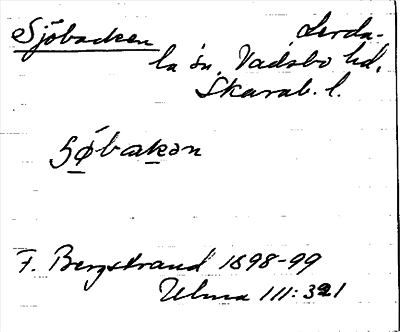 Sjöbacken Lerda-
la sn. Vadsbo hd.
Skarab. l.
Sǿbakən
F. Bergstrand 1898-99
Ulma 111: 321